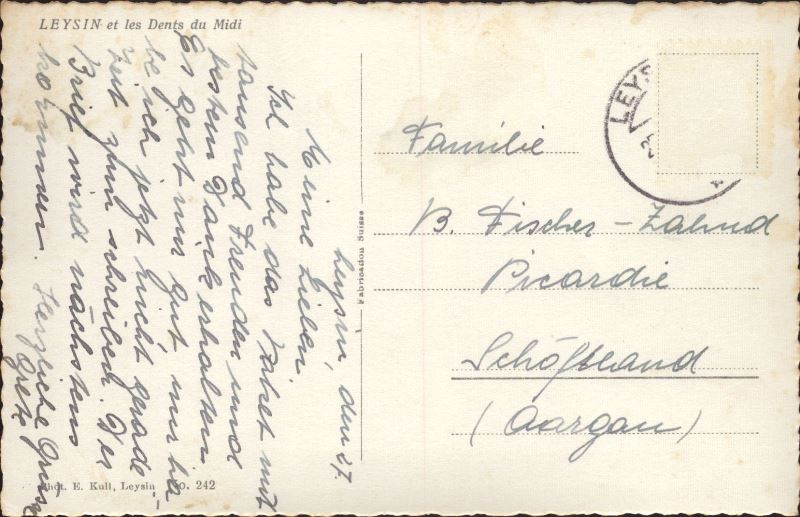 LEYSIN et les Dents du Midi
Leysin, den 27.
Meine Lieben
Ich habe das Paket mit
tausend Freuden und
bestem Dank erhalten
Es geht mir gut nur ha
be ich jetzt nicht gerade
Zeit zum schreiben. Der
Brief wird nächstens
kommen. Herzliche Grüsse
Greti
Phot. E. Kull, Leysin No. 242
Fabrication Suisse
LEYS
Familie
B. Fischer-Zahnd
Picardie
Schöftland
(Aargau)